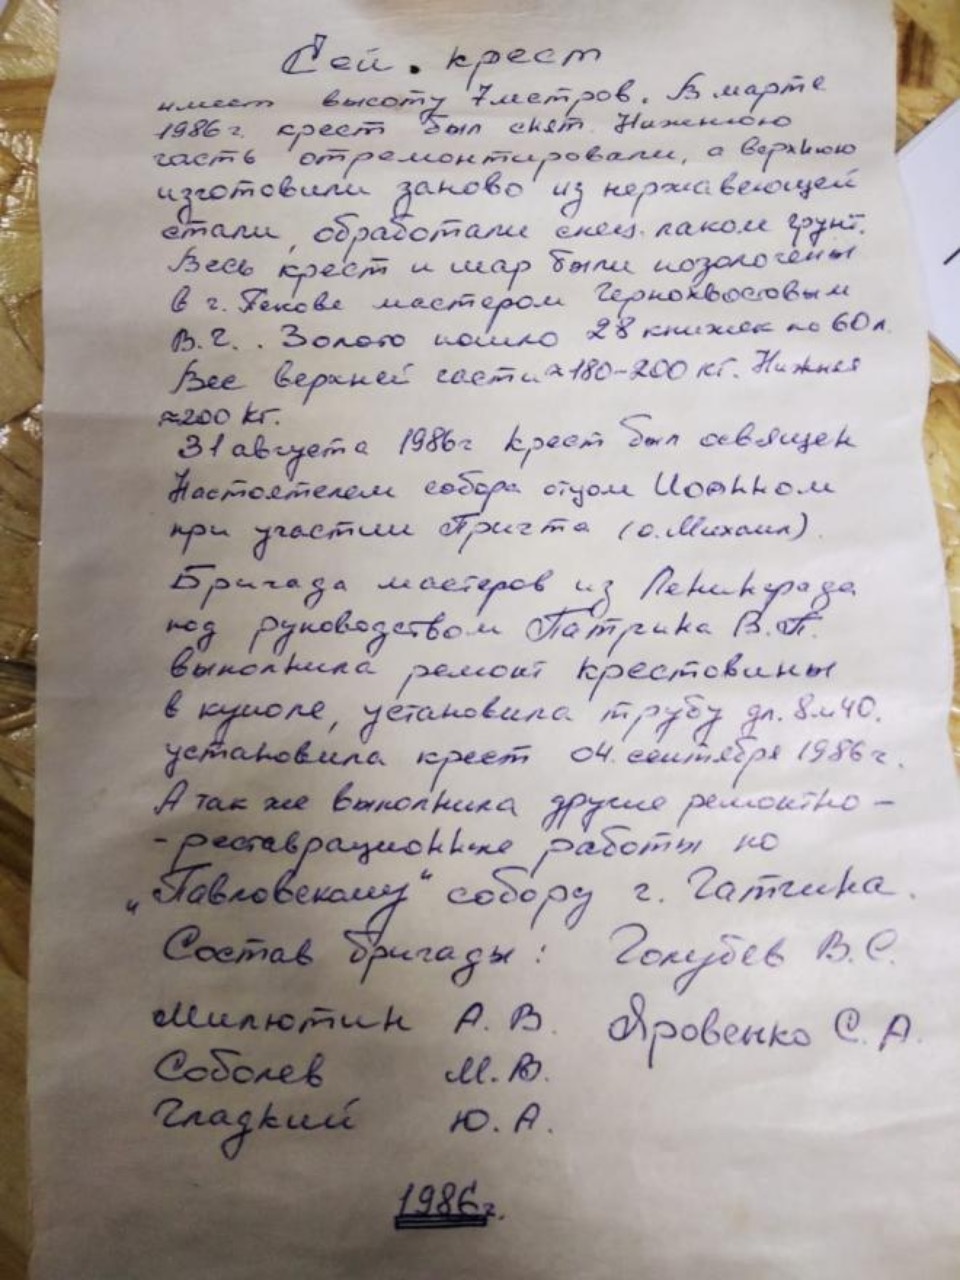 Сей. крест
имеет высоту 7 метров. В марте
1986 г. крест был снят. Нижнюю
часть отремонтировали, а верхнюю
изготовили заново из нержавеющей
стали, обработали спец. лаком грунт.
Весь крест и шар были позолочены
в г. Пскове мастером Чернохвостовым
В.Г.. Золото пошло 28 книжек по 60 л.
Вес верхней части ≈ 180-200 кг. Нижняя
≈200 кг.
31 августа 1986 г крест был освящен
Настоятелем собора отцом Иоанном
при участии Причта (о. Михаил).
Бригада мастеров из Ленинграда
под руководством Патрина В.П.
выполнила ремонт крестовины
в куполе, установила трубу дл. 8м40.
установила крест 04. сентября 1986 г.
А так же выполнила другие ремонтно-
-реставрационные работы по
„Павловскому“ собору г. Гатчина.
Состав бригады: Голубев В.С.
Милютин А.В. Яровенко С.А.
Соболев М.В.
Гладкий Ю.А.
1986 г.